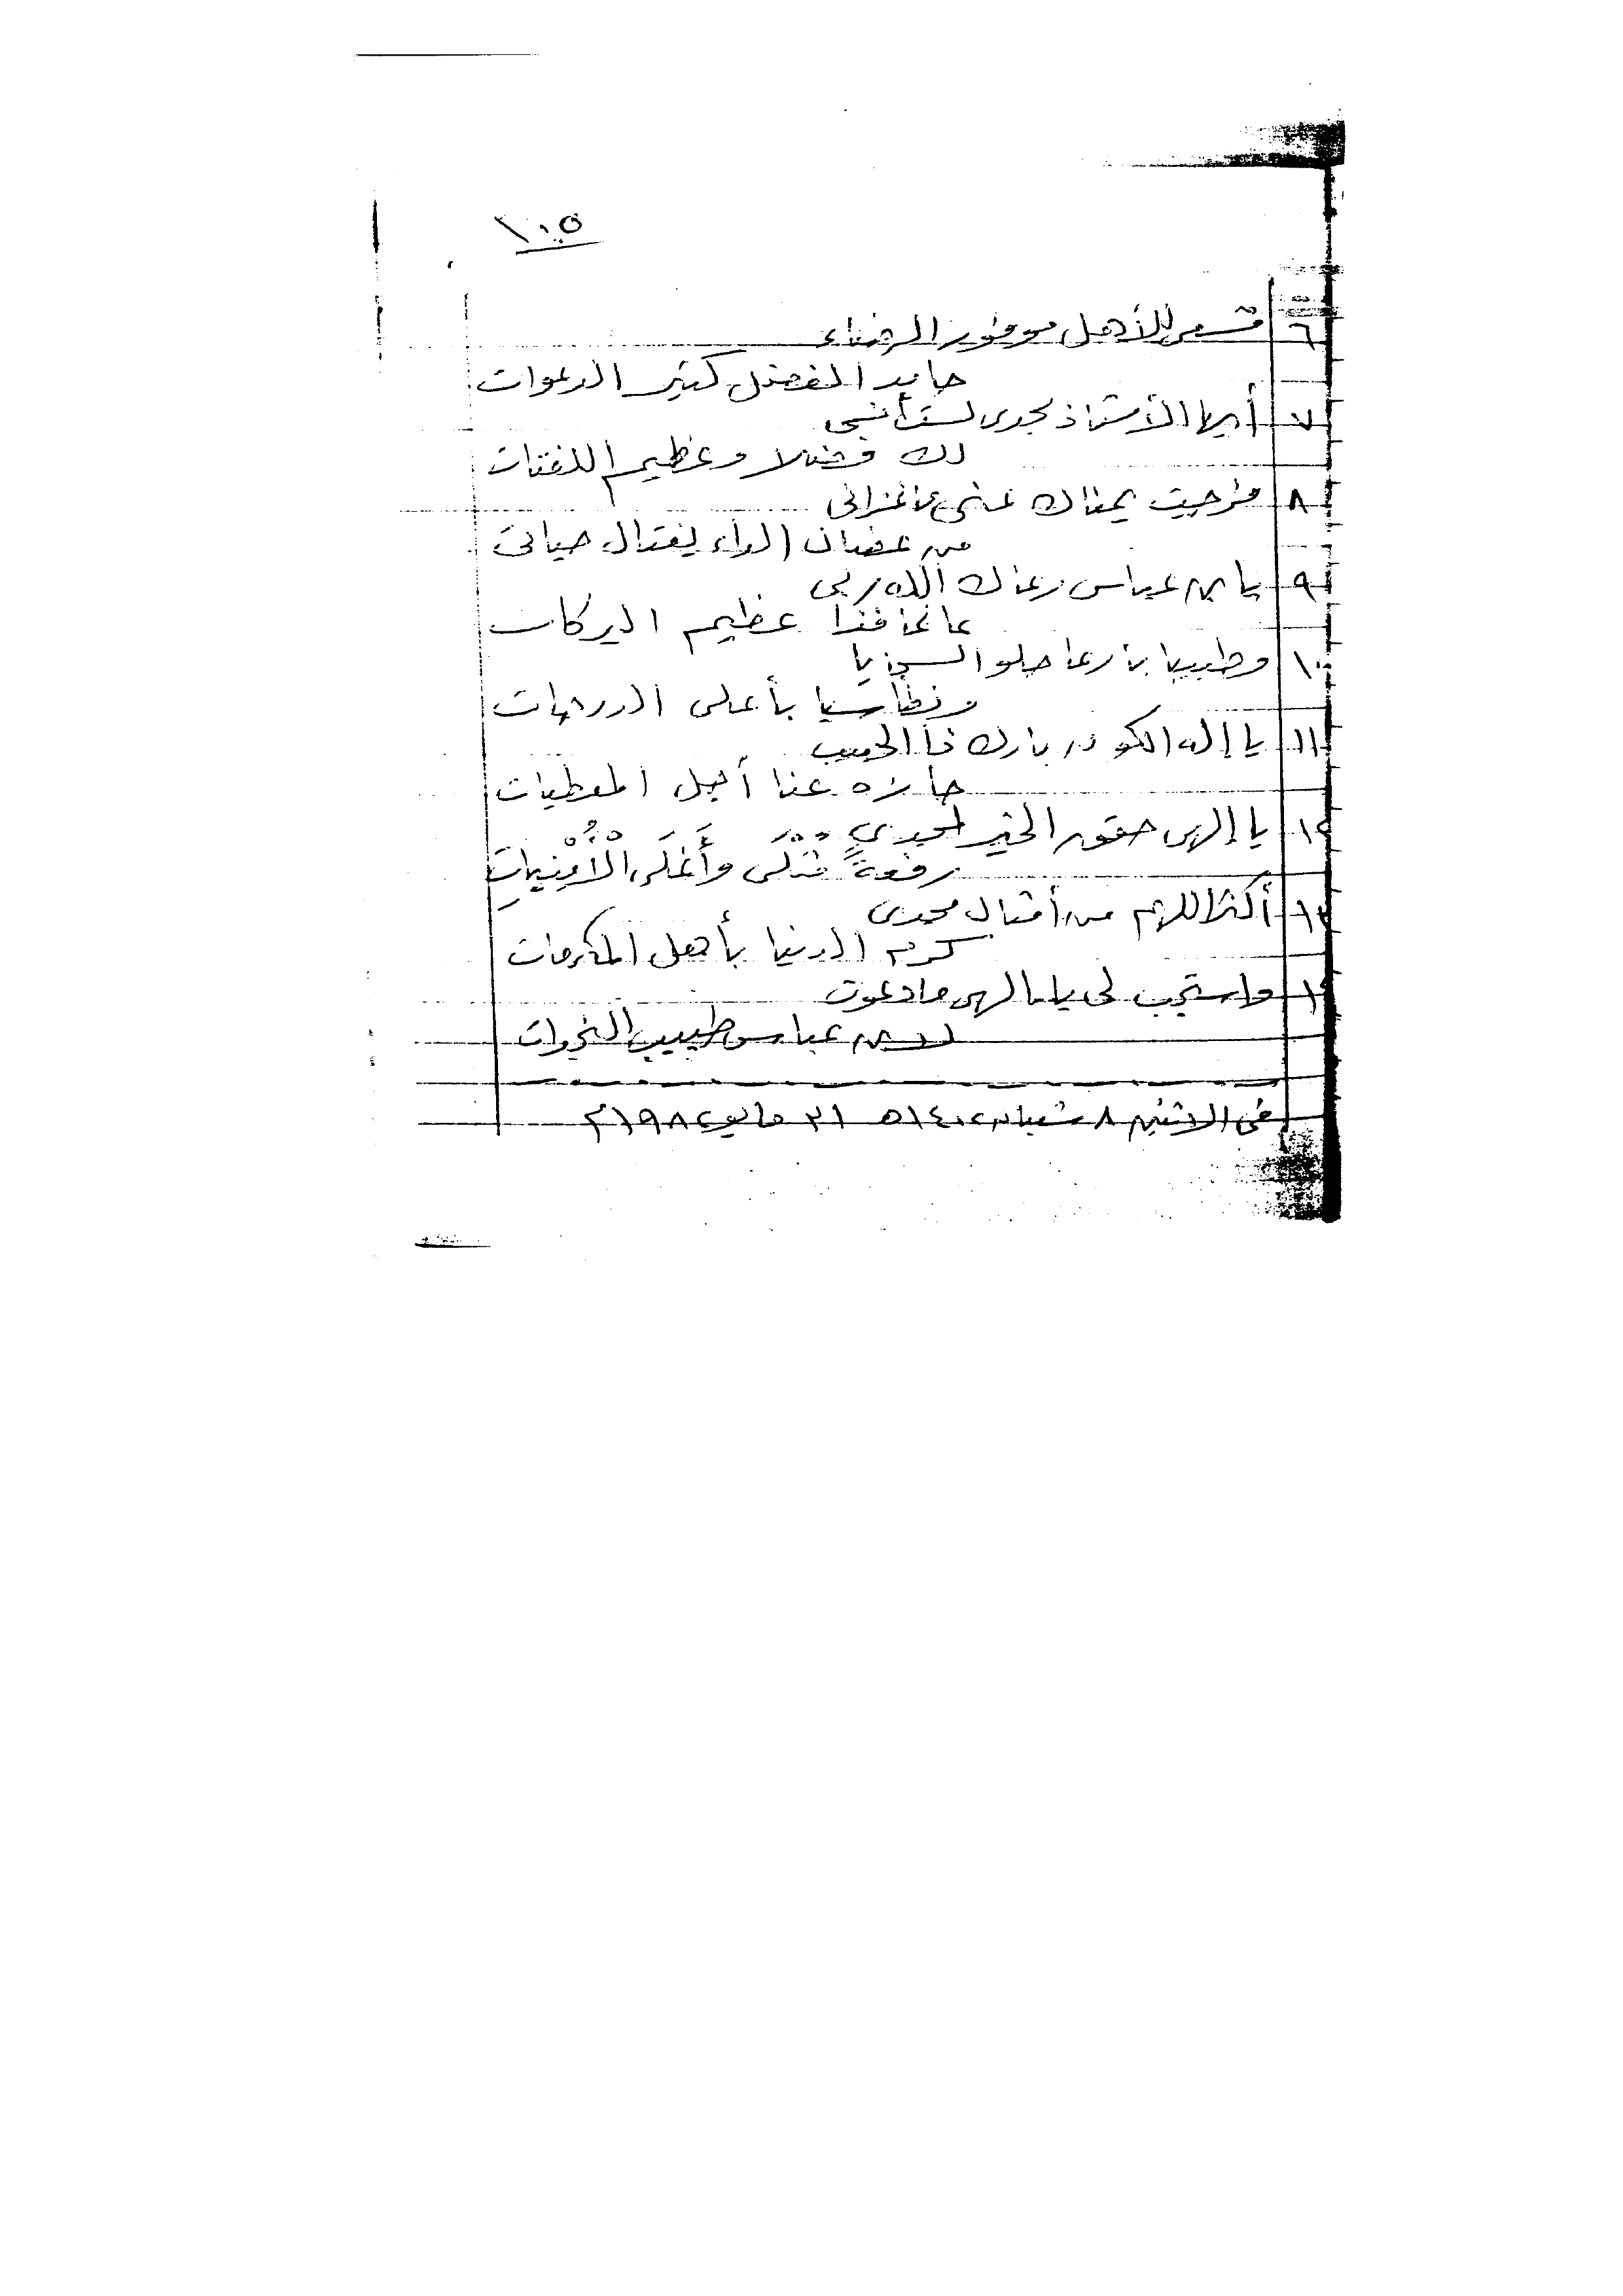 ١٠٥
٦ للأهل موفور الرضاء
حامد الفضل كثير الدعوات
٧ أيها الأستاذ مجدى لست أنسى
لك فضلا وعظيم اللفتات
٨ يمناك عنى ما غزانى
من عضال الداء يغتال حياتى
٩ يا بن عباس رعاك الله ربى
عائدا عظيم البركات
١٠ وطبيبا بارعا حلو السجايا
ونطاسيا بأعلى الدرجات
١١ يا إله الكون بارك ذا الحبيب
جازه عنا أجل المعطيات
١٢ يا إلهى حقق الخير لمجدى
رفعةً تترى وأَغلَى الْأُمْنِيات
١٣ أكثر اللهم من أمثال مجدى
كرم الدنيا بأهل المكرمات
١٤ واستجب لى يا إلهى ما دعوت
لابن عباس طبيب
فى الاثنين ٨ شعبان ١٤٠٢ه ٣١ مايو ١٩٨٢م